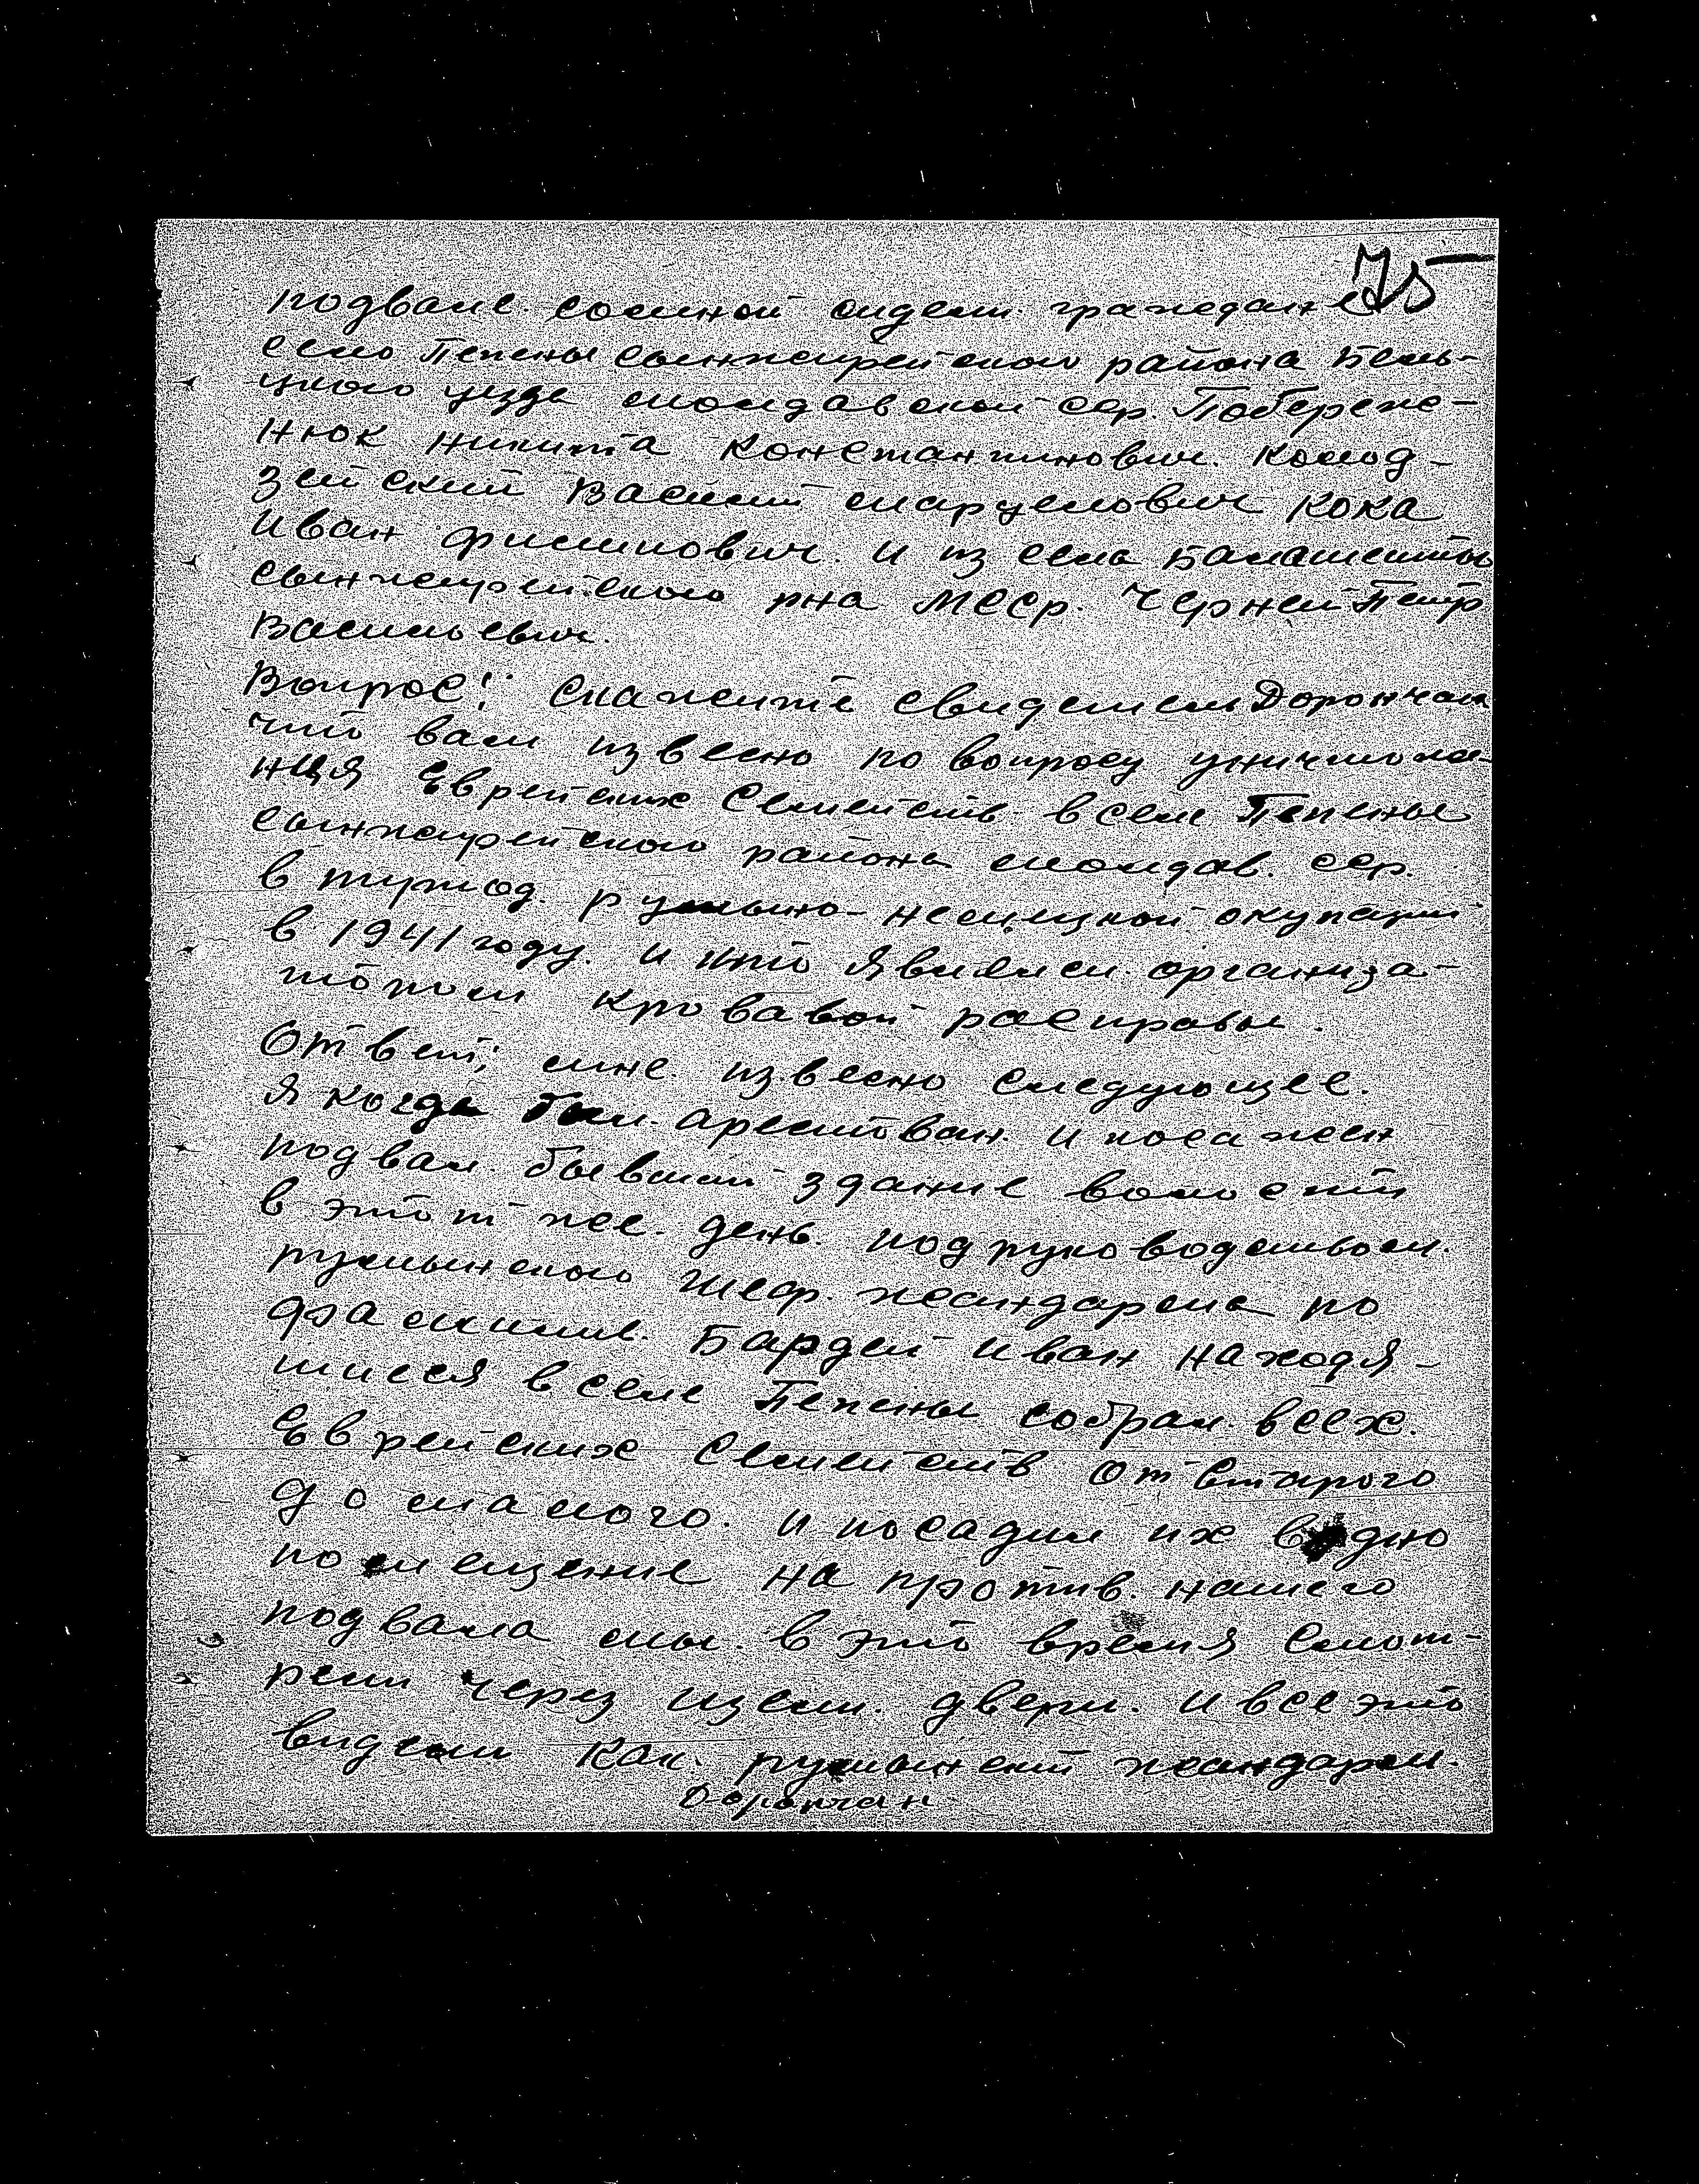 75
подвале сомной сидели граждане
село Пепены сынжерейского района Бель-
цкого уезда молдавской сср. Побереже-
нюк Никита Константинович. Колод-
зейский Василий Марцелович Кока
Иван Филипович. и из села Балашешты
сынжерейского рна МССР. Черней Петр
Васильевич.
Вопрос: Скажите свидетель Дорончан
что вам извесно по вопросу уничтоже-
нця Еврейских Семейств в селе Пепены
сынжерейского района молдав. сср.
в период румыно-немецкой окупации
в 1941 году. и кто явился организа-
тором кровавой расправы.
Ответ; мне извесно следующее.
Я когда был арестован и посажен
подвал бывший здание волости
в этот же день под руководством
румынского шеф. жандарма по
фамилии. Бардей Иван находя-
шиеся в селе Пепены собрал всех
Еврейских Семейств от старого
до малого. и посадил их в одно
помещение на против нашего
подвала мы в это время смот-
рели через щели двери. и все это
видели как румынский жандарм
Дорончан